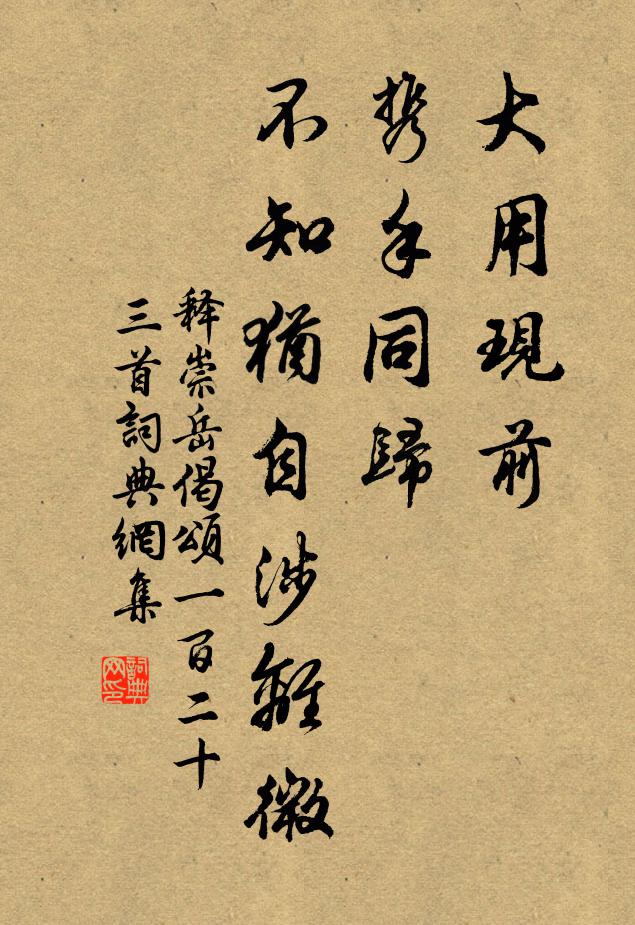 大用現前
携手同歸
不知猶自涉離微
释崇岳偈頌一百二十
三首詞典網集
詞典
网印